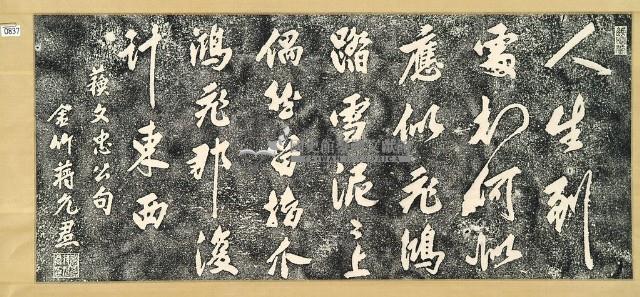 人生到
處知何似
應似飛鴻
踏雪泥〻上
偶然留指爪
鴻飛那復
计東西
蘇文忠公句
金竹蔣允焄
0837